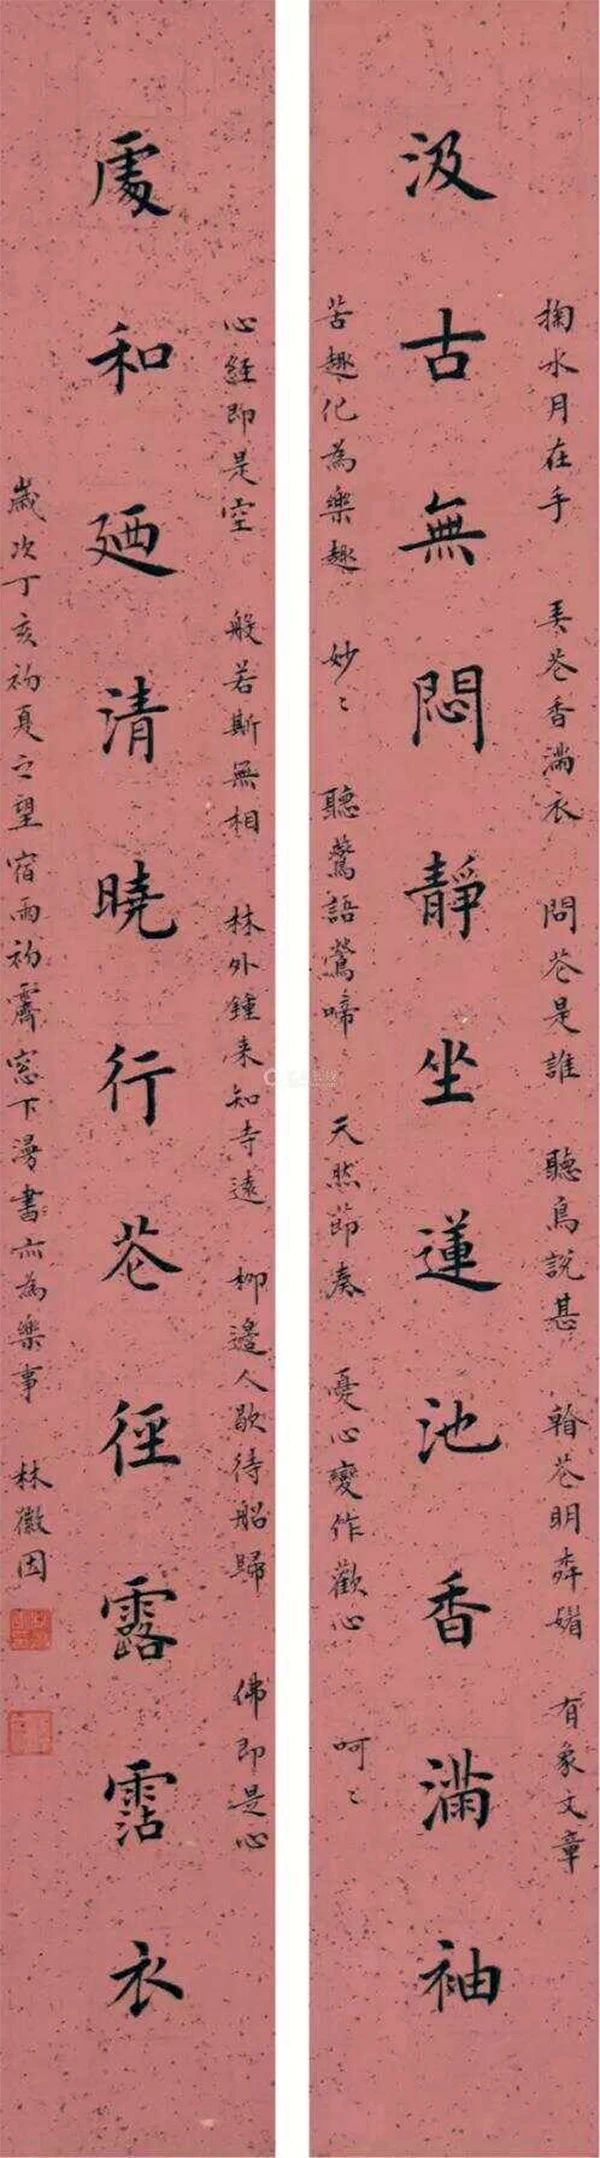 掬水月在手 弄花香滿衣 問花是誰 聽鳥說甚 翰花明森媚 有象文章
汲古無悶靜坐蓮池香滿袖
苦趣化為樂趣 妙〻 聽鶯語鶯啼 天然節奏 憂心變作歡心 呵〻
心經即是空 般若斯無相 林外鍾来知寺遠 柳邊人歇待船歸 佛即是心
處和廼清曉行花徑露霑衣
歲次丁亥初夏之望宿雨初霽窓下漫書亦為樂事 林徽因